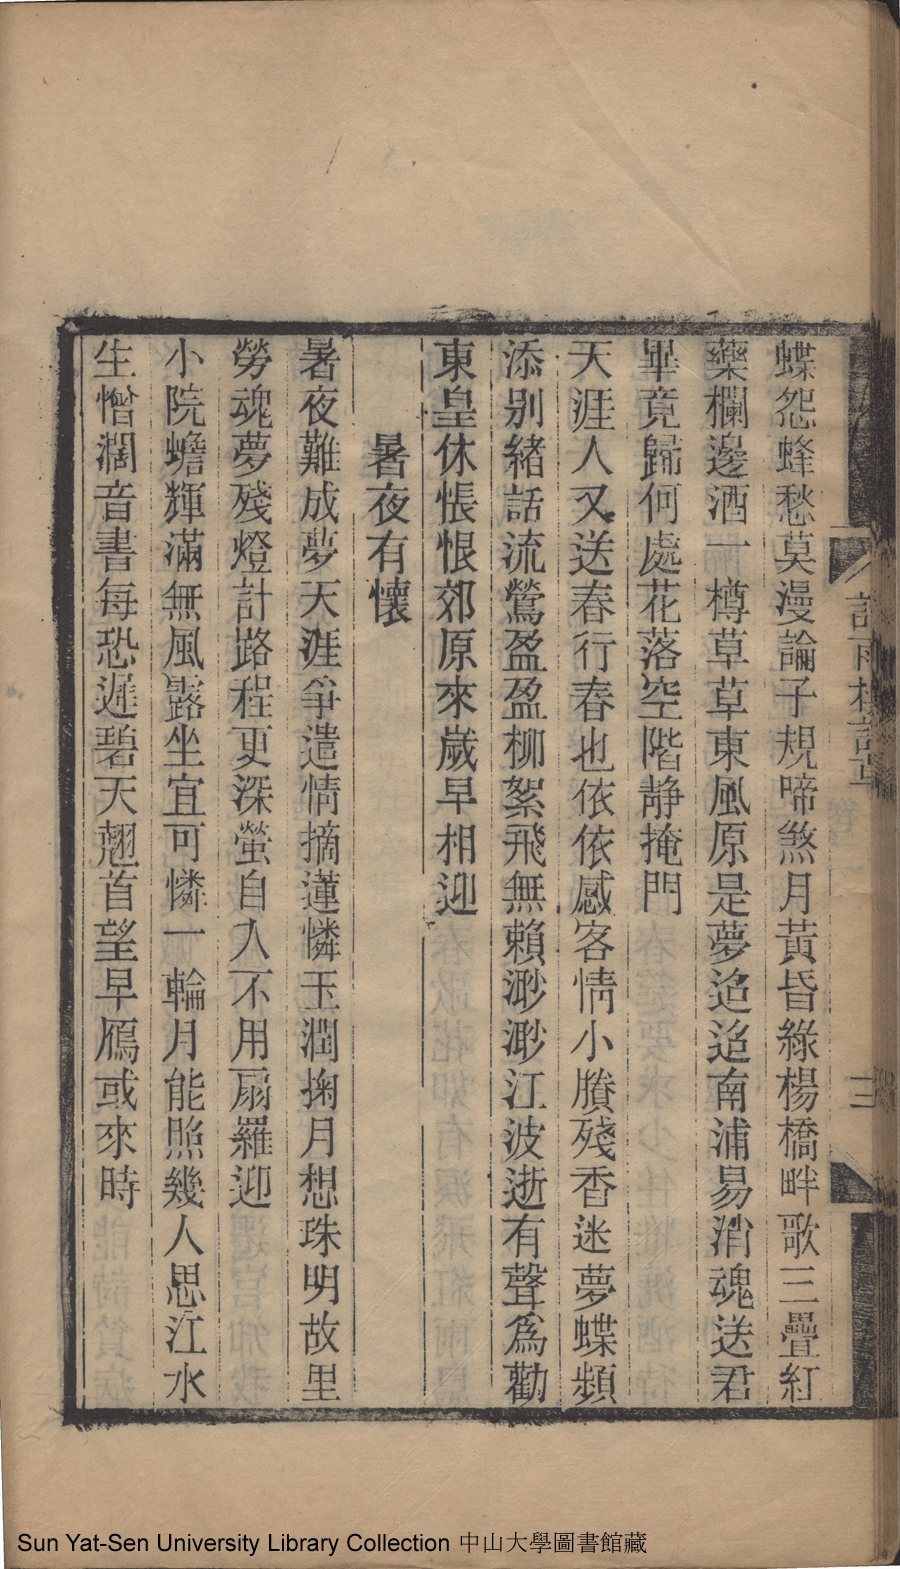 蝶怨蜂愁莫漫論子規啼煞月黃昏綠楊橋畔歌三疊紅
藥欄邊酒一樽草草東風原是夢迢迢南浦易消魂送君
畢竟歸何處花落空階靜掩門
天涯人又送春行春也依依感客情小賸殘香迷夢蝶頻
添別緒話流鶯盈盈柳絮飛無賴渺渺江波逝有聲爲勸
東皇休悵恨郊原來歲早相迎
暑夜有懷
暑夜難成夢天涯爭遣情摘蓮憐玉潤掬月想珠明故里
勞魂夢殘燈計路程更深螢自入不用扇羅迎
小院蟾輝滿無風露坐宜可憐一輪月能照幾人思江水
生憎濶音書每恐遲碧天翹首望早鴈或來時
三
Sun Yat-Sen University Library Collection 中山大學圖書館藏